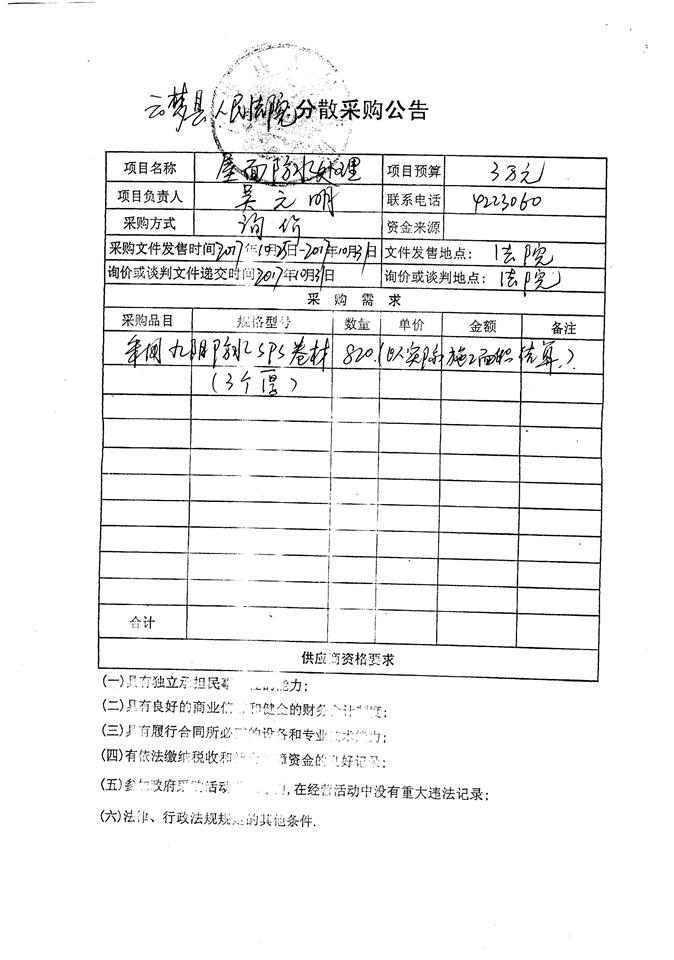 云梦县人民法院分散采购公告
项目名称 屋面防水处理 项目预算 3万元
项目负责人 吴元明 联系电话 4223060
采购方式 询价 资金来源
采购文件发售时间 2017年10月25日-2017年10月31日 文件发售地点: 法院
询价或谈判文件递交时间 2017年10月31日 询价或谈判地点: 法院
采 购 需 求
采购品目 规格型号 数量 单价 金额 备注
采用九阳防水SPS卷材 820.(以实际施工面积结算.)
(3个厚)
合计
供应商资格要求
(一)具有独立承担民事 的能力;
(二)具有良好的商业信 和健全的财务会计制度;
(三)具有履行合同所必 的设备和专业技术能力;
(四)有依法缴纳税收和 障资金的良好记录;
(五)参加政府采购活动 内,在经营活动中没有重大违法记录;
(六)法律、行政法规规定的其他条件.